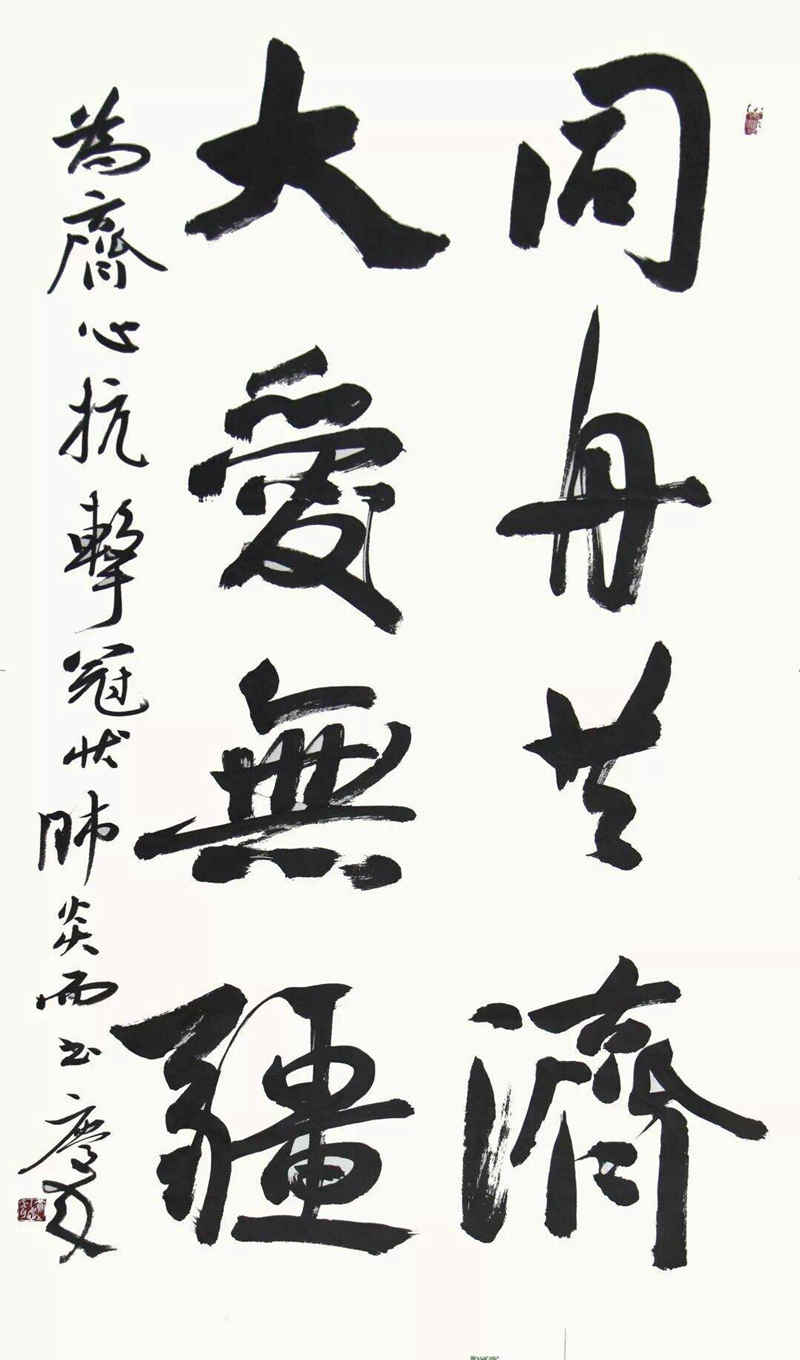 同舟共濟
大愛無疆
為齊心抗擊冠狀肺炎而书 慶友